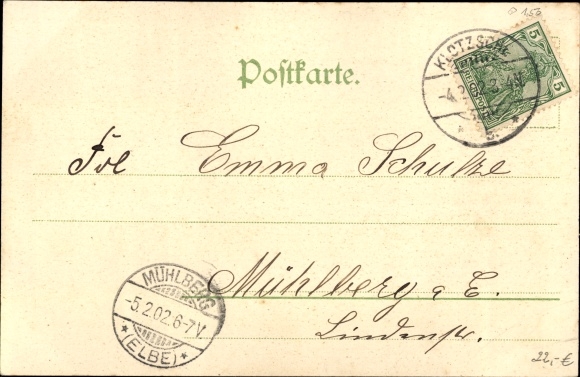 0150
5
5
KLOTZSCHE
-4.2.02.3-4N.
* b. *
Postkarte.
Frl Emma Schulze
Mühlberg a E.
Lindenstr.
MÜHLBERG
-5.2.02.6-7V.
* (ELBE) *
22,-€